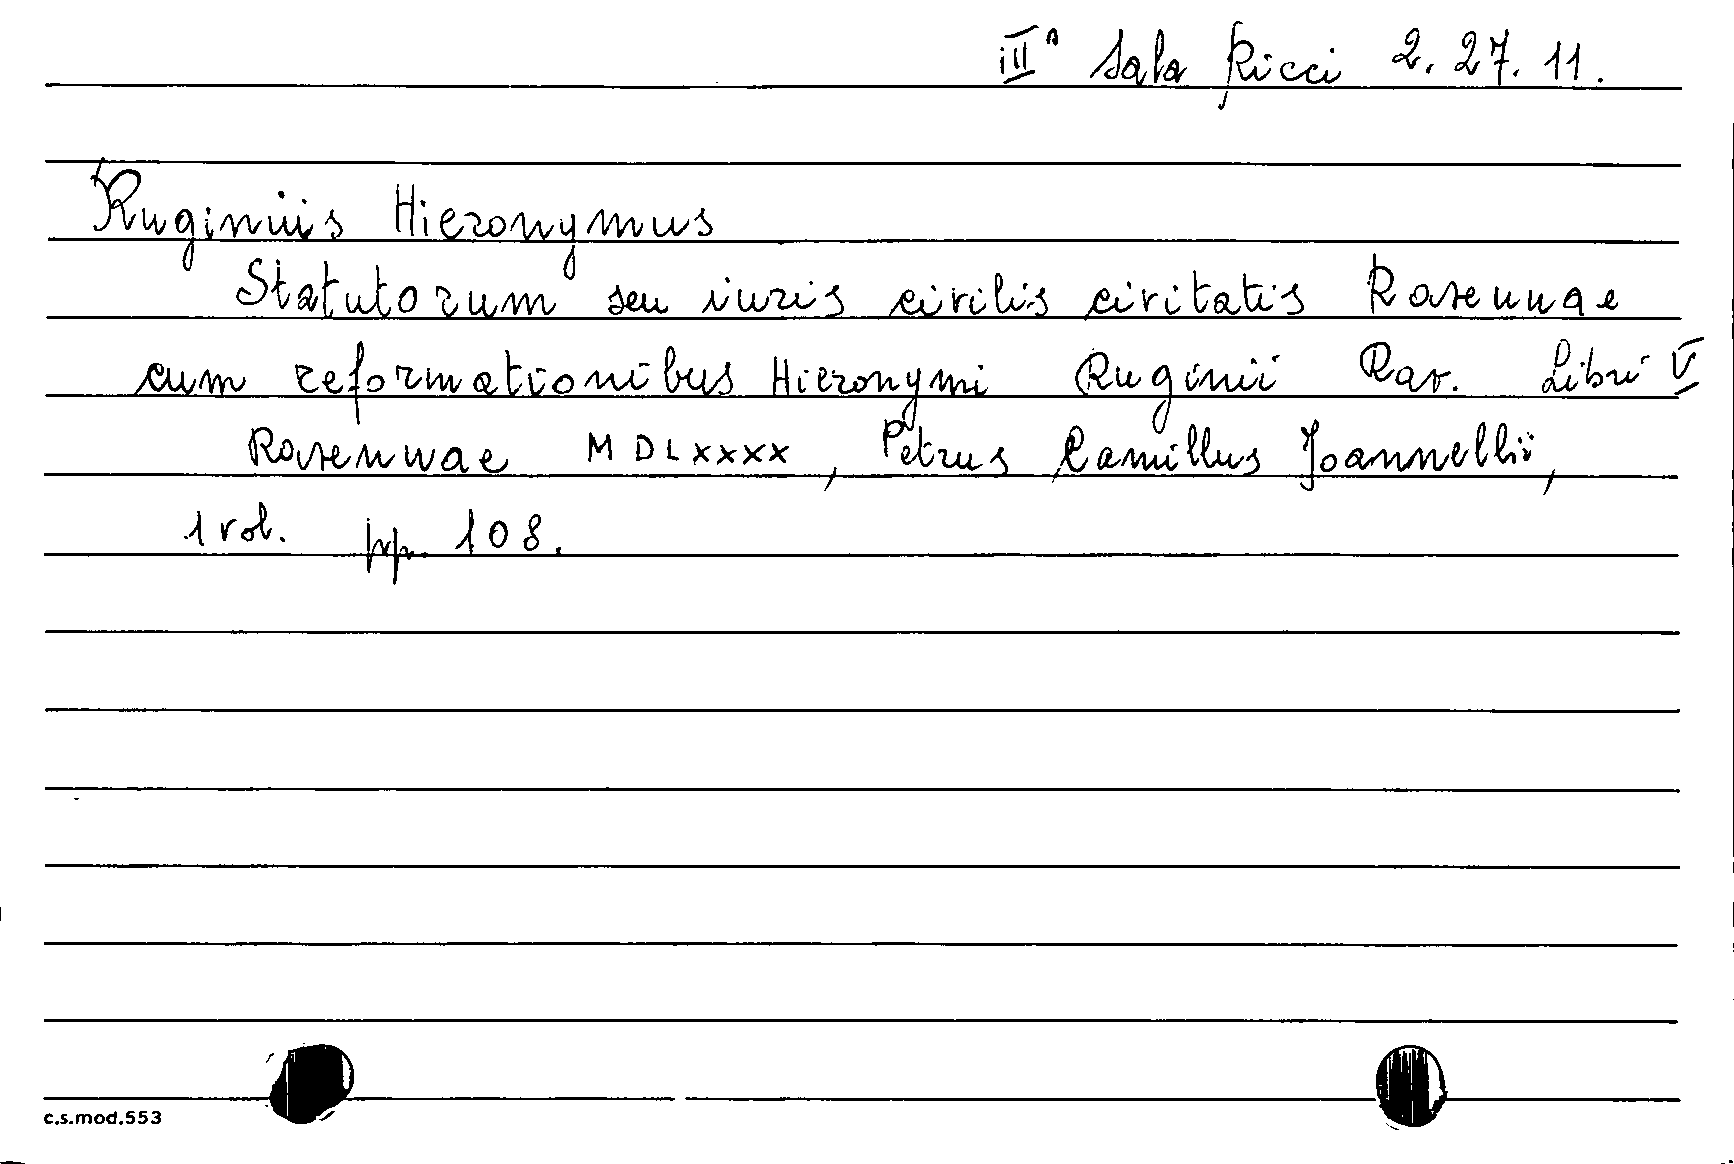 IIIª Sala Ricci 2. 27. 11.
Ruginius Hieronymus
Statutorum seu iuris civilis civitatis Ravennae
cum reformationibus Hieronymi Ruginii Rav. Libri V
Ravennae MDLXXXX, Petrus Camillus Joannellii,
1 vol. pp. 108.
c.s.mod.553